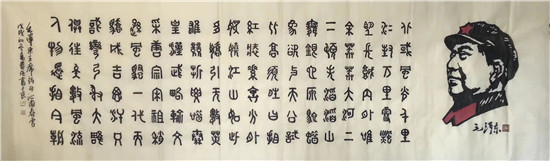 北國風光千里
冰封萬里雪飄
望長城內外惟
餘莽莽大河上
下頓失滔滔山
舞銀蛇原馳蠟
象欲與天公試
比高須晴日看
紅裝素裹分外
妖嬈江山如此
多嬌引無數英
雄競折腰惜秦
皇漢武略輸文
采唐宗宋祖稍
遜風騷一代天
驕成吉思汗只
識彎弓射大雕
俱往矣數風流
人物還看今朝
毛澤東主席詞沁園春雪
戊戌
毛澤東